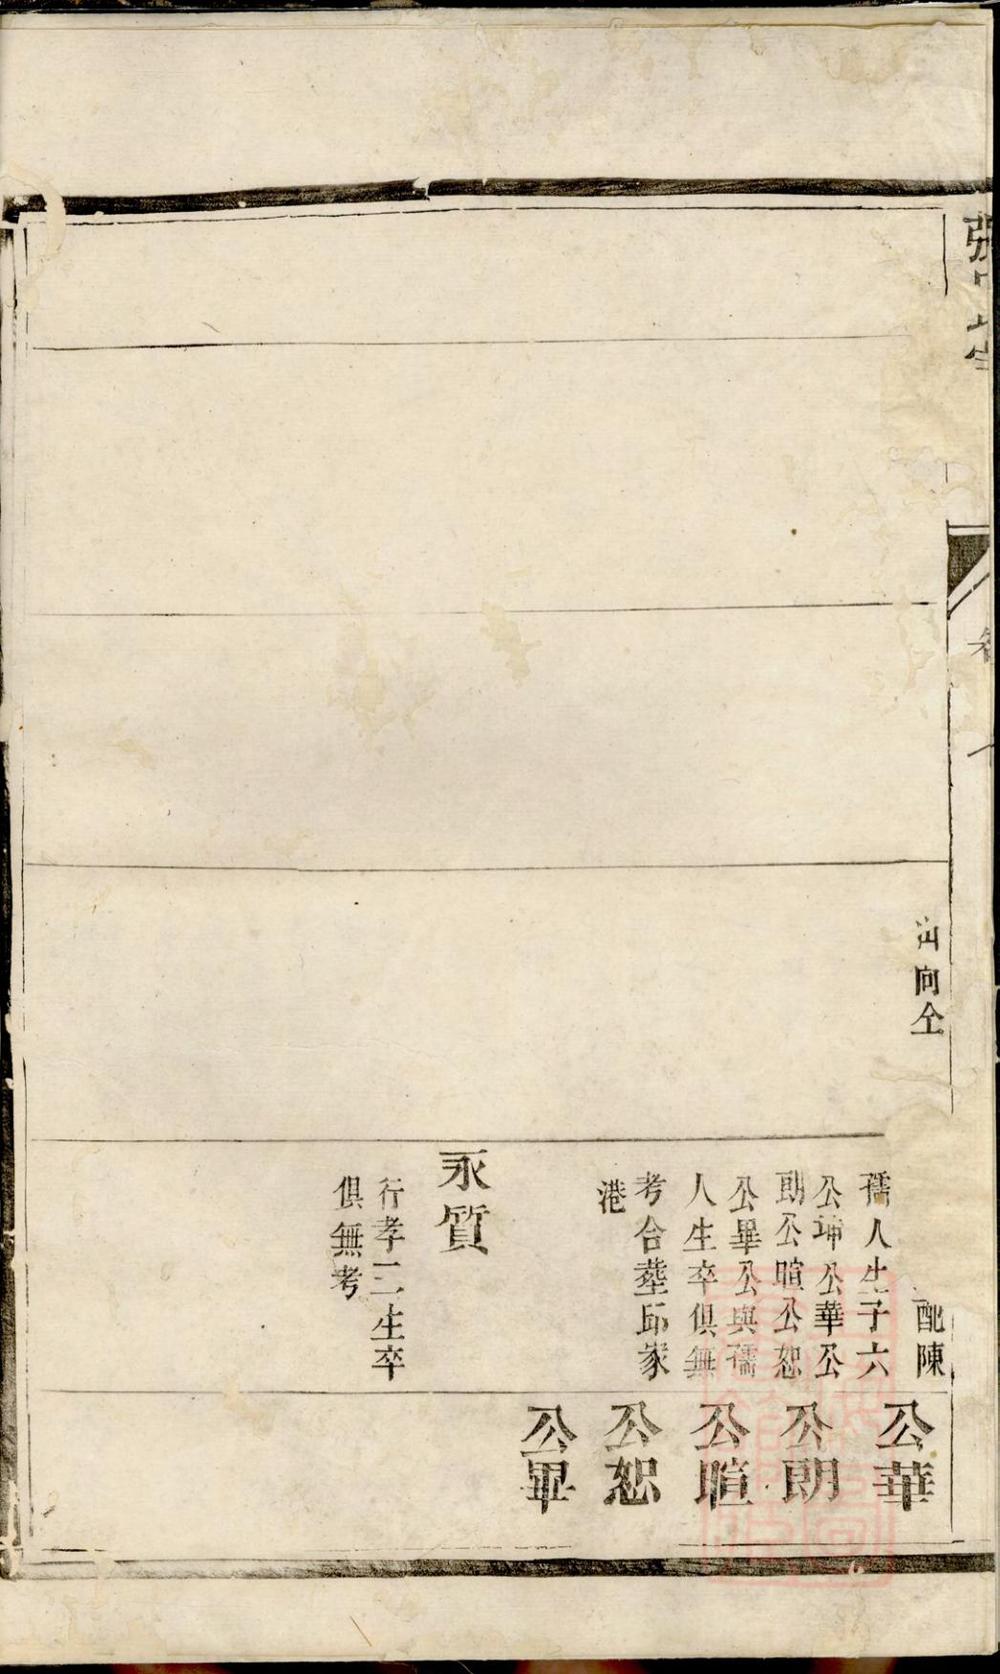 向仝
配陳
孺人生子六
公坤公華公
朗公暄公恕
公畢公與孺
人生卒俱無
考合塟邱家
港
永質
行孝二生卒
俱無考
公華
公朗
公暄
公恕
公畢